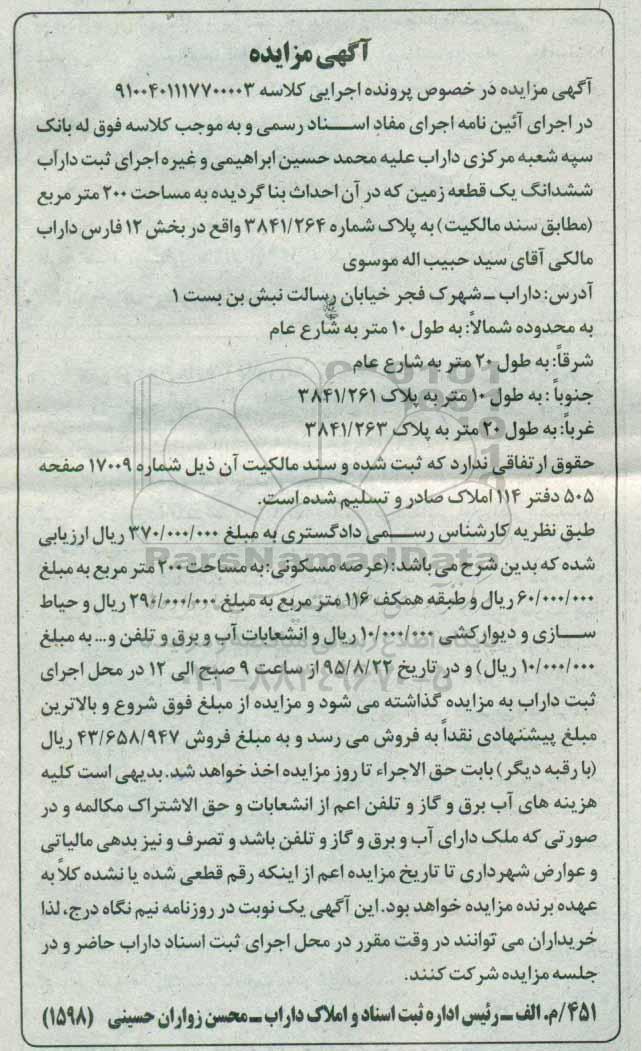 آگهی مزایده
آگهی مزایده در خصوص پرونده اجرایی کلاسه ۹۱۰۰۴۰۱۱۱۷۷۰۰۰۰۳
در اجرای آئین نامه اجرای مفاد اسناد رسمی و به موجب کلاسه فوق له بانک
سپه شعبه مرکزی داراب علیه محمد حسین ابراهیمی و غیره اجرای ثبت داراب
ششدانگ یک قطعه زمین که در آن احداث بنا گردیده به مساحت ۲۰۰ متر مربع
(مطابق سند مالکیت) به پلاک شماره ۳۸۴۱/۲۶۴ واقع در بخش ۱۲ فارس داراب
مالکی آقای سید حبیب اله موسوی
آدرس: داراب ـ شهرک فجر خیابان رسالت نبش بن بست ۱
به محدوده شمالاً: به طول ۱۰ متر به شارع عام
شرقاً: به طول ۲۰ متر به شارع عام
جنوباً : به طول ۱۰ متر به پلاک ۳۸۴۱/۲۶۱
غرباً: به طول ۲۰ متر به پلاک ۳۸۴۱/۲۶۳
حقوق ارتفاقی ندارد که ثبت شده و سند مالکیت آن ذیل شماره ۱۷۰۰۹ صفحه
۵۰۵ دفتر ۱۱۴ املاک صادر و تسلیم شده است.
طبق نظریه کارشناس رسمی دادگستری به مبلغ ۳۷۰/۰۰۰/۰۰۰ ریال ارزیابی
شده که بدین شرح می باشد: (عرصه مسکونی: به مساحت ۲۰۰ متر مربع به مبلغ
۶۰/۰۰۰/۰۰۰ ریال و طبقه همکف ۱۱۶ متر مربع به مبلغ ۲۹۰/۰۰۰/۰۰۰ ریال و حیاط
سازی و دیوارکشی ۱۰/۰۰۰/۰۰۰ ریال و انشعابات آب و برق و تلفن و... به مبلغ
۱۰/۰۰۰/۰۰۰ ریال) و در تاریخ ۹۵/۸/۲۲ از ساعت ۹ صبح الی ۱۲ در محل اجرای
ثبت داراب به مزایده گذاشته می شود و مزایده از مبلغ فوق شروع و بالاترین
مبلغ پیشنهادی نقداً به فروش می رسد و به مبلغ فروش ۴۳/۶۵۸/۹۴۷ ریال
(با رقبه دیگر) بابت حق الاجراء تا روز مزایده اخذ خواهد شد. بدیهی است کلیه
هزینه های آب برق و گاز و تلفن اعم از انشعابات و حق الاشتراک مکالمه و در
صورتی که ملک دارای آب و برق و گاز و تلفن باشد و تصرف و نیز بدهی مالیاتی
و عوارض شهرداری تا تاریخ مزایده اعم از اینکه رقم قطعی شده یا نشده کلاً به
عهده برنده مزایده خواهد بود. این آگهی یک نوبت در روزنامه نیم نگاه درج، لذا
خریداران می توانند در وقت مقرر در محل اجرای ثبت اسناد داراب حاضر و در
جلسه مزایده شرکت کنند.
۴۵۱/م. الف ـ رئیس اداره ثبت اسناد و املاک داراب ـ محسن زواران حسینی (۱۵۹۸)
ParsNamadData